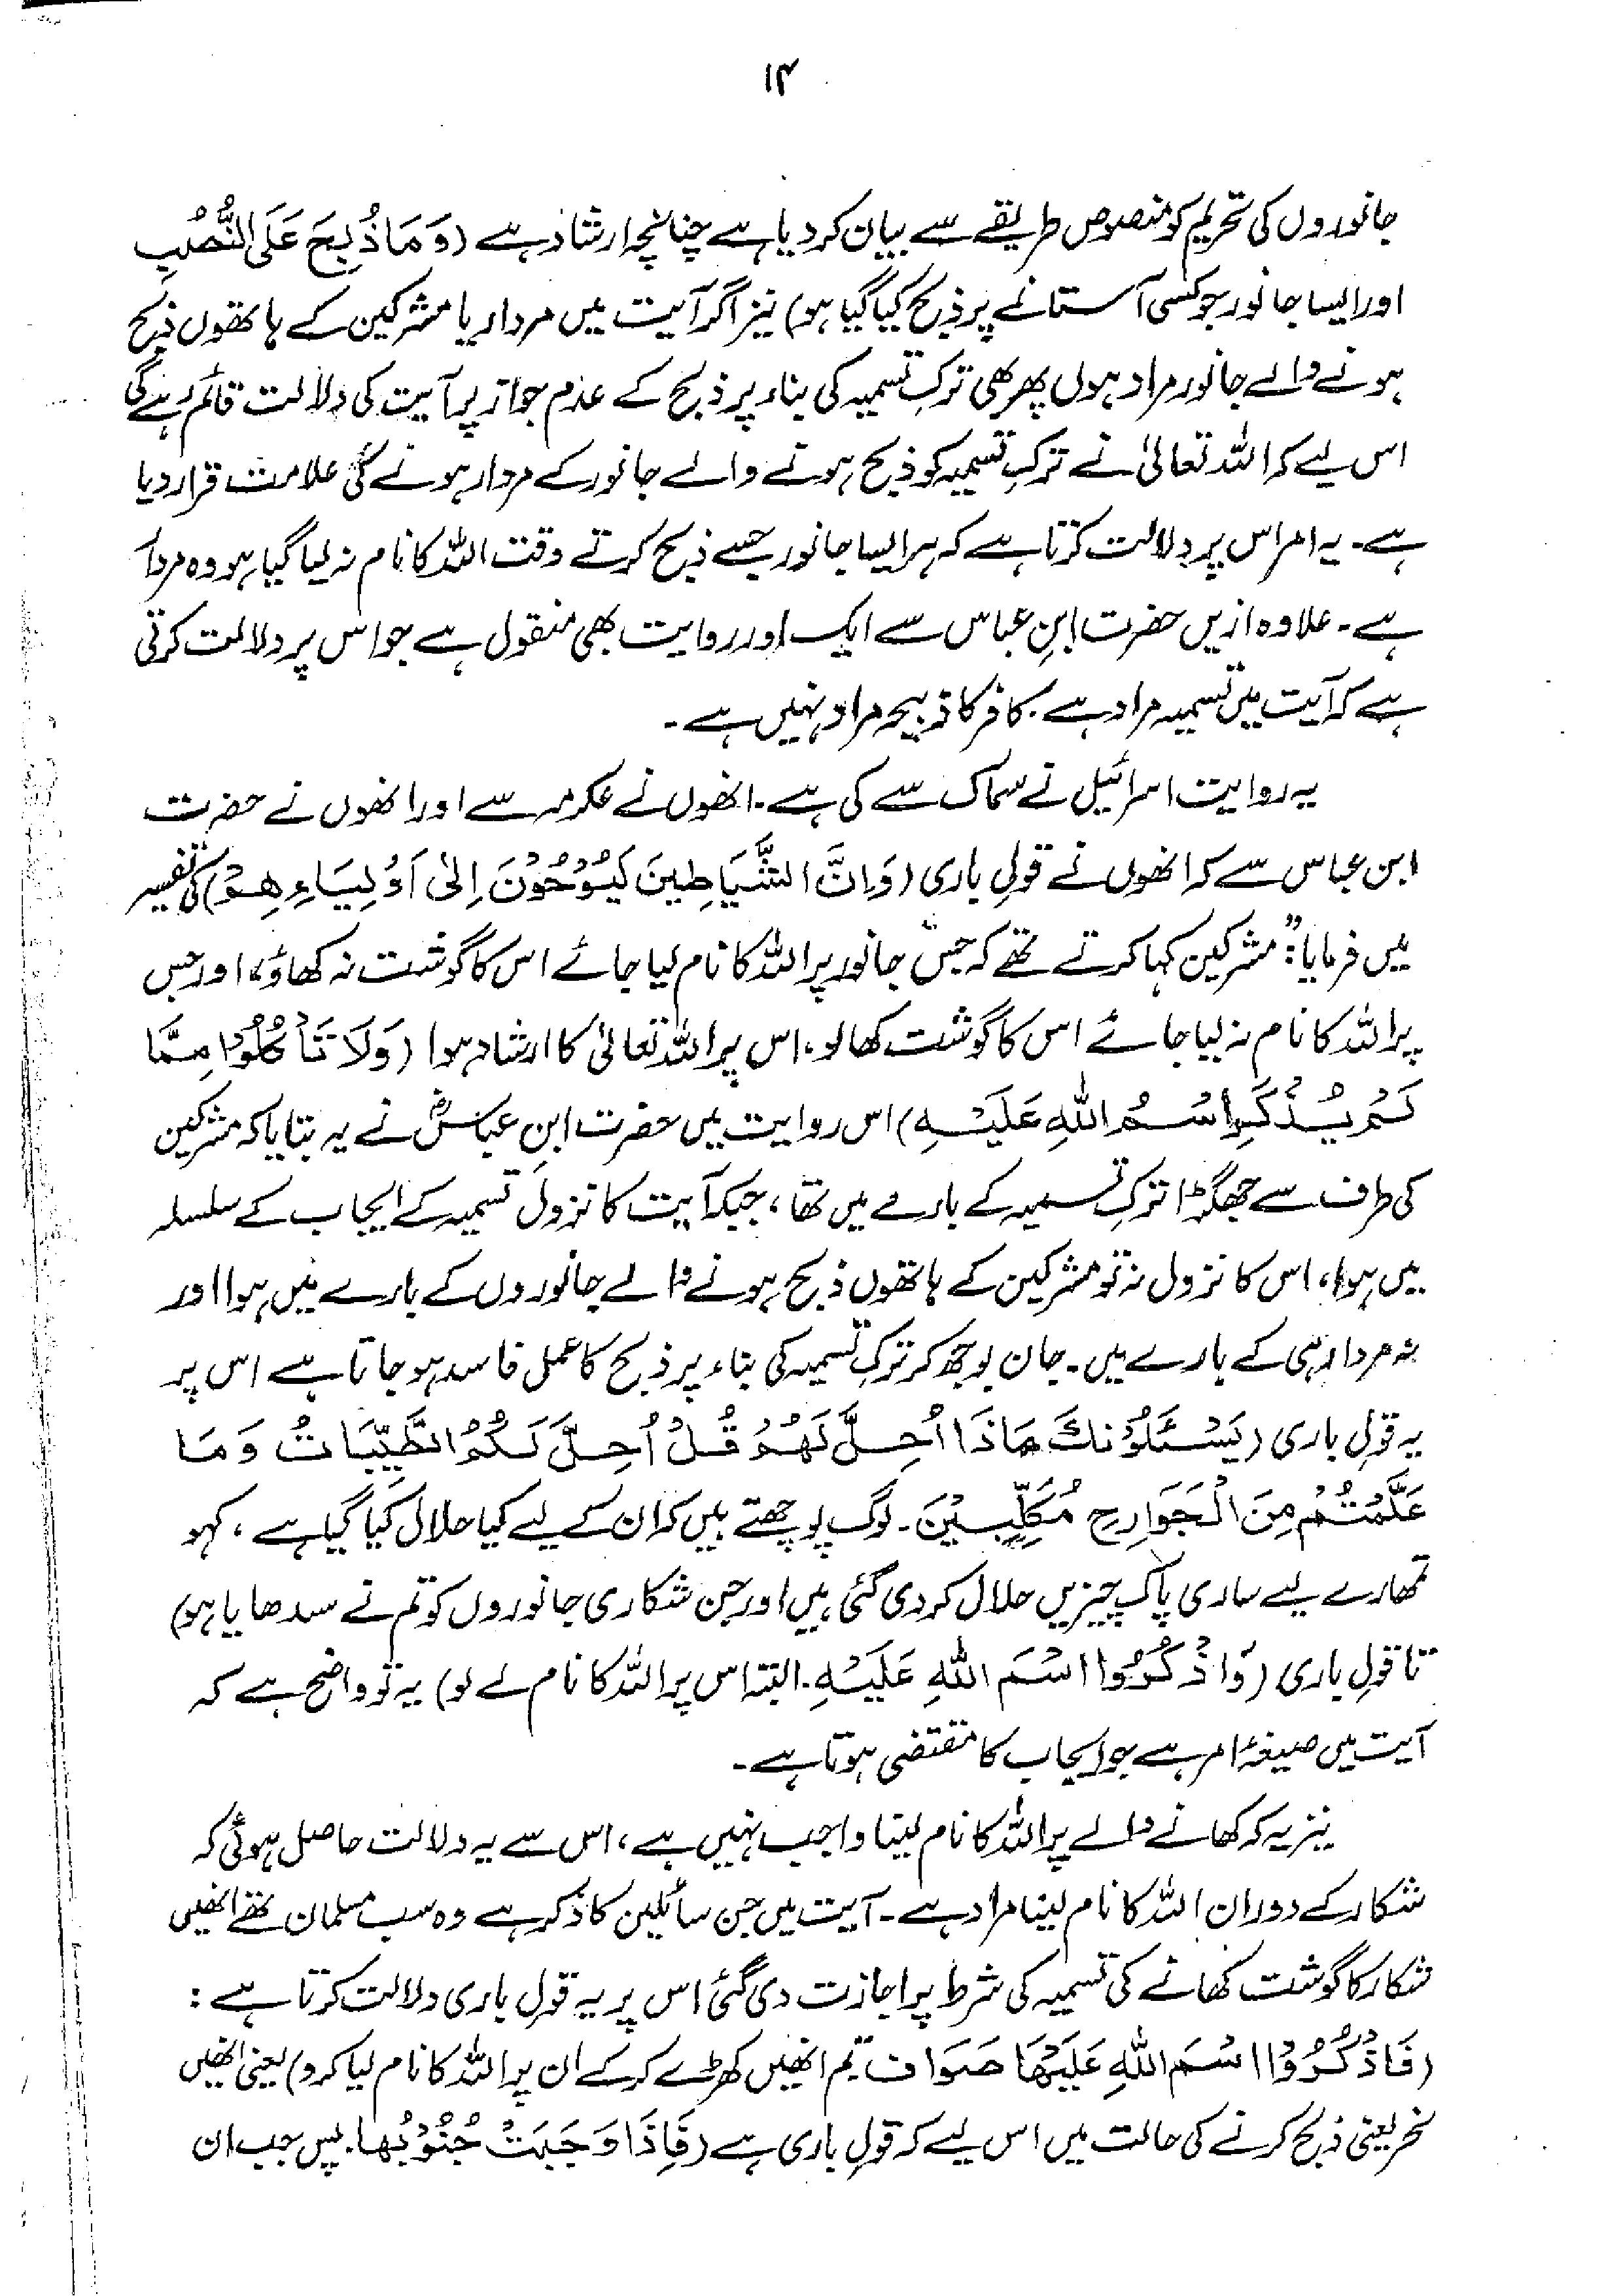 ۱۴
جانوروں کی تحریم کو منصوص طریقے سے بیان کر دیا ہے چنانچہ ارشاد ہے (وَمَا ذُبِحَ عَلَی النُّصُبِ
اور ایسا جانور جو کسی آستانے پر ذبح کیا گیا ہو) نیز اگر آیت میں مردار یا مشرکین کے ہاتھوں ذبح
ہونے والے جانور مراد ہوں پھر بھی ترکِ تسمیہ کی بناء پر ذبح کے عدم جواز پر آیت کی دلالت قائم رہے گی
اس لیے کہ اللہ تعالیٰ نے ترکِ تسمیہ کو ذبح ہونے والے جانور کے مردار ہونے کی علامت قرار دیا
ہے۔ یہ امر اس پر دلالت کرتا ہے کہ ہر ایسا جانور جسے ذبح کرتے وقت اللہ کا نام نہ لیا گیا ہو وہ مردار
ہے۔ علاوہ ازیں حضرت ابنِ عباس سے ایک اور روایت بھی منقول ہے جو اس پر دلالت کرتی
ہے کہ آیت میں تسمیہ مراد ہے۔ کافر کا ذبیحہ مراد نہیں ہے۔
یہ روایت اسرائیل نے سماک سے کی ہے۔ انھوں نے عکرمہ سے اور انھوں نے حضرت
ابن عباس سے کہ انھوں نے قولِ باری (وَاِنَّ الشَّيَاطِينَ لَيُوْحُوْنَ اِلىٰ اَوْلِيَاءِهِمْ) کی تفسیر
میں فرمایا: "مشرکین کہا کرتے تھے کہ جس جانور پر اللہ کا نام لیا جائے اس کا گوشت نہ کھاؤ، اور جس
پر اللہ کا نام نہ لیا جائے اس کا گوشت کھالو، اس پر اللہ تعالیٰ کا ارشاد ہوا (وَلَا تَأْكُلُوْا مِمَّا
لَمْ يُذْكَرِ اسْمُ اللّٰهِ عَلَيْهِ) اس روایت میں حضرت ابنِ عباسؓ نے یہ بتایا کہ مشرکین
کی طرف سے جھگڑا ترکِ تسمیہ کے بارے میں تھا، جبکہ آیت کا نزول تسمیہ کے ایجاب کے سلسلہ
میں ہوا، اس کا نزول نہ تو مشرکین کے ہاتھوں ذبح ہونے والے جانوروں کے بارے میں ہوا اور
نہ مردار ہی کے بارے میں۔ جان بوجھ کر ترکِ تسمیہ کی بناء پر ذبح کا عمل فاسد ہو جاتا ہے اس پر
یہ قولِ باری (يَسْئَلُوْنَكَ مَاذَا اُحِلَّ لَهُمْ قُلْ اُحِلَّ لَكُمُ الطَّيِّبَاتُ وَمَا
عَلَّمْتُمْ مِنَ الْجَوَارِحِ مُكَلِّبِيْنَ۔ لوگ پوچھتے ہیں کہ ان کے لیے کیا حلال کیا گیا ہے، کہو
تمھارے لیے ساری پاک چیزیں حلال کر دی گئی ہیں اور جن شکاری جانوروں کو تم نے سدھایا ہو)
تا قولِ باری (وَاذْكُرُوا اسْمَ اللّٰهِ عَلَيْهِ۔ البتہ اس پر اللہ کا نام لے لو) یہ تو واضح ہے کہ
آیت میں صیغۂ امر ہے جو ایجاب کا مقتضی ہوتا ہے۔
نیز یہ کہ کھانے والے پر اللہ کا نام لینا واجب نہیں ہے، اس سے یہ دلالت حاصل ہوئی کہ
شکار کے دوران اللہ کا نام لینا مراد ہے۔ آیت میں جن سائلین کا ذکر ہے وہ سب مسلمان تھے انھیں
شکار کا گوشت کھانے کی تسمیہ کی شرط پر اجازت دی گئی اس پر یہ قول باری دلالت کرتا ہے :
(فَاذْكُرُوْا اسْمَ اللّٰهِ عَلَيْهَا صَوَافَّ تم انھیں کھڑے کر کے ان پر اللہ کا نام لیا کرو) یعنی انھیں
نحر یعنی ذبح کرنے کی حالت میں اس لیے کہ قولِ باری ہے (فَاِذَا وَجَبَتْ جُنُوْبُهَا۔ پس جب ان